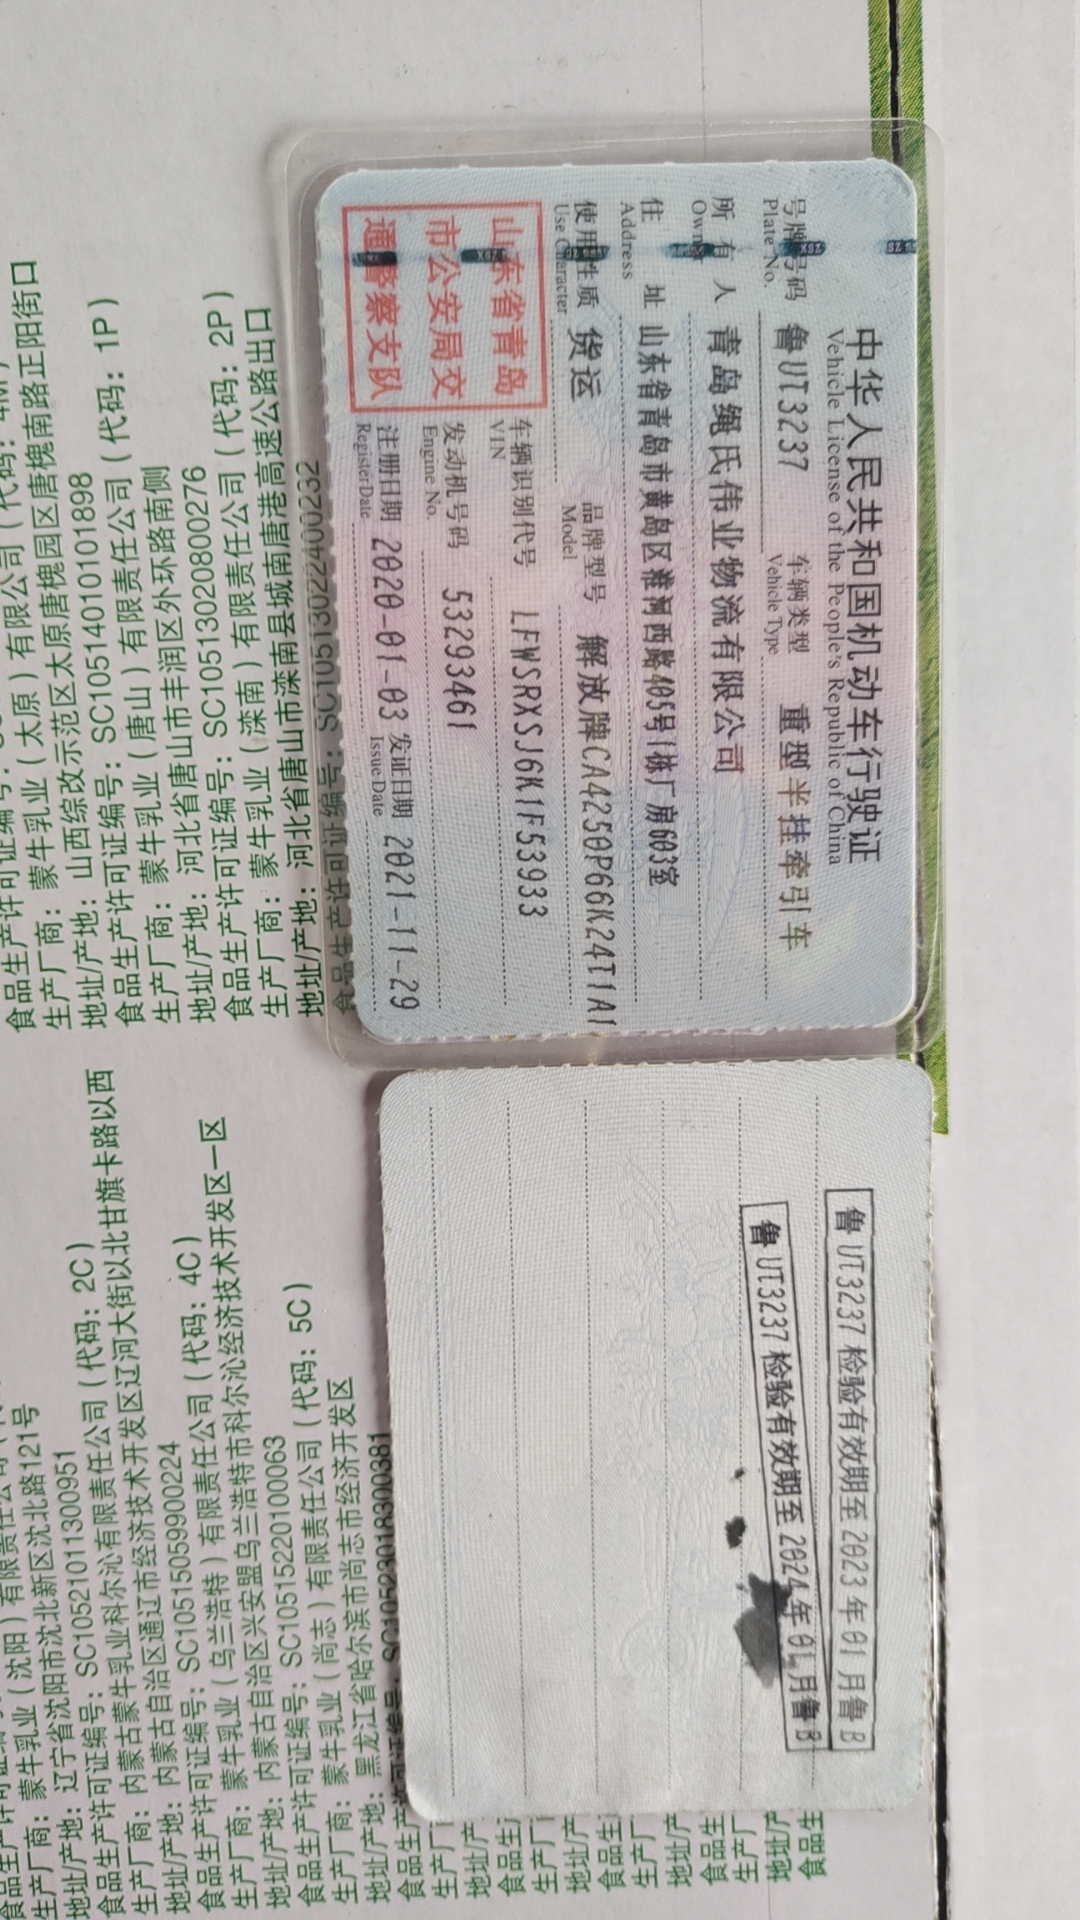 中华人民共和国机动车行驶证
Vehicle License of the People's Republic of China
号牌号码 鲁UT3237 车辆类型 重型半挂牵引车
Plate No. Vehicle Type
所有人 青岛绳氏伟业物流有限公司
Owner
住址 山东省青岛市黄岛区淮河西路405号1栋厂房603室
Address
使用性质 货运 品牌型号 解放牌CA4250P66K24T1A1
Use Character Model
山东省青岛
市公安局交
通警察支队
车辆识别代号 LFWSRXSJ6K1F53933
VIN
发动机号码 53293461
Engine No.
注册日期 2020-01-03 发证日期 2021-11-29
Register Date Issue Date
鲁UT3237 检验有效期至2023年01月鲁B
鲁UT3237 检验有效期至2024年01月鲁B
蒙牛乳业(太原)有限公司
山西综改示范区太原唐槐园区唐槐南路正阳街口
食品生产许可证编号:SC10514010101898
生产厂商:蒙牛乳业(唐山)有限责任公司(代码:1P)
地址/产地:河北省唐山市丰润区外环路南侧
食品生产许可证编号:SC10513020800276
生产厂商:蒙牛乳业(滦南)有限责任公司(代码:2P)
地址/产地:河北省唐山市滦南县城南唐港高速公路出口
食品生产许可证编号:SC10513022400232
生产厂商:蒙牛乳业(沈阳)有限责任公司
地址/产地:辽宁省沈阳市沈北新区沈北路121号
食品生产许可证编号:SC10521011300951
生产厂商:内蒙古蒙牛乳业科尔沁有限责任公司(代码:2C)
地址/产地:内蒙古自治区通辽市经济技术开发区辽河大街以北甘旗卡路以西
食品生产许可证编号:SC10515059900224
生产厂商:蒙牛乳业(乌兰浩特)有限责任公司(代码:4C)
地址/产地:内蒙古自治区兴安盟乌兰浩特市科尔沁经济技术开发区一区
食品生产许可证编号:SC10515220100063
生产厂商:蒙牛乳业(尚志)有限责任公司(代码:5C)
地址/产地:黑龙江省哈尔滨市尚志市经济开发区
SC10523018300381